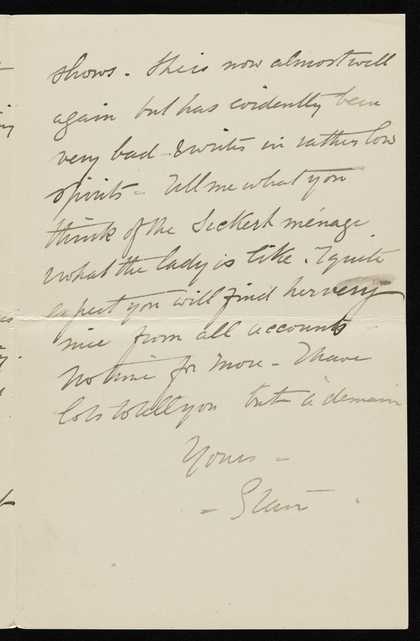 shows. She is now almost well
again but has evidently been
very bad & writes in rather low
spirits - Tell me what you
think of the Sickert ménage
& what the lady is like. I quite
expect you will find her very
nice from all accounts
No time for more - I have
lots to tell you but à demain
Yours -